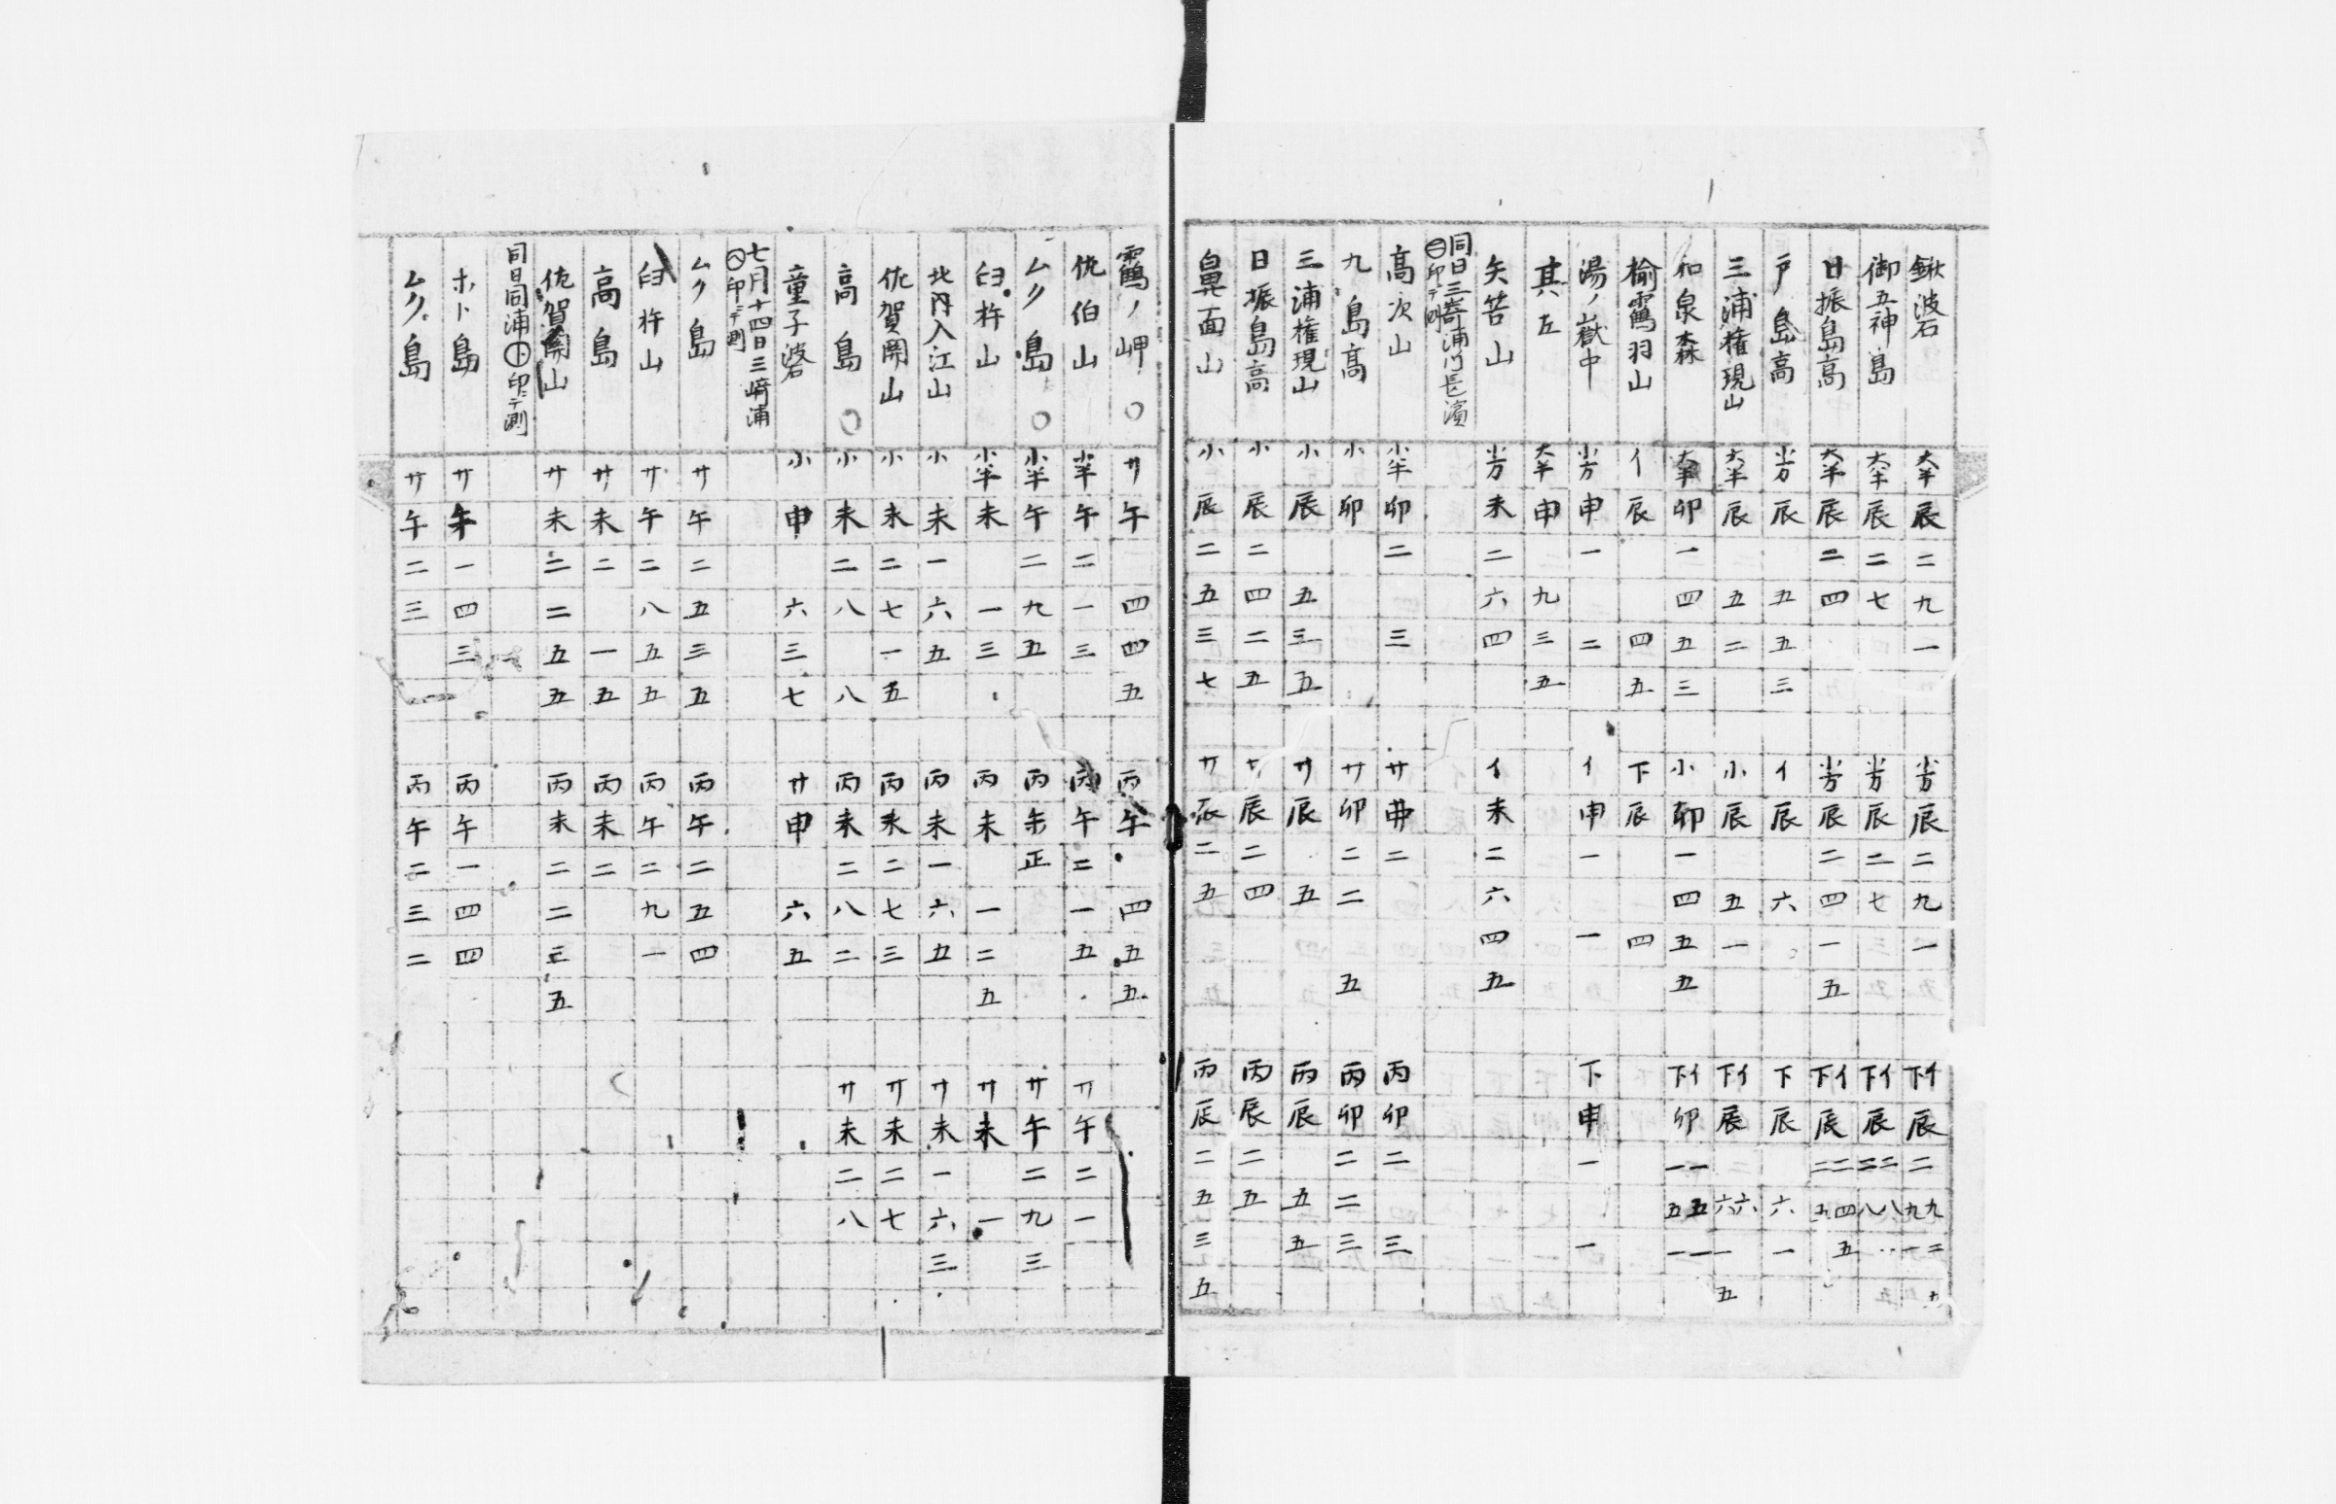 鍬波石 大半辰二九一 小方辰二九一 下イ辰二九九一二五
御五神島 大半辰二七 小方辰二七 下イ辰二二八八
日振島高 大半辰二四 小方辰二四一五 下イ辰二二四五五
戸島高 小方辰五五三 イ辰六 下辰六一
三浦権現山 大半辰五二 小辰五一 下イ辰六六一五
和泉森 大半卯一四五三 小卯一四五五 下イ卯一一五五一一
楡靏羽山 イ辰四五 下辰四
湯ノ嶽中 小方申一二 イ申一一 下申一一
其左 大半申九三五
矢筈山 小方未二六四 イ未二六四五
同日三嵜浦ノ内長濱
㊁印ニテ測
高次山 小半卯二三 廿卯二 丙卯二三
九島高 小卯 廿卯二二五 丙卯二二三
三浦権現山 小辰五三五 廿辰五 丙辰五五
日振島高 小辰二四二五 廿辰二四 丙辰二五
鼻面山 小辰二五三七 廿辰二五 丙辰二五三五
靏ノ岬〇 廿午四四五 丙午四五五
佐伯山 小半午二一三 丙午二一五 廿午二一
ムク島〇 小半午二九五 丙午正 廿午二九三
臼杵山 小半未一三 丙未一二五 廿未一
北内入江山 小未一六五 丙未一六五 廿未一六三
佐賀関山 小未二七一五 丙未二七三 廿未二七
高島〇 小未二八八 丙未二八二 廿未二八
童子碆 小申六三七 廿申六五
七月十四日三﨑浦
㊀印ニテ測
ムク島 廿午二五三五 丙午二五四
臼杵山 廿午二八五五 丙午二九一
高島 廿未二一五 丙未二
佐賀関山 廿未二二五五 丙未二二三五
同日同浦㊦印ニテ測
ホト島 廿午一四三 丙午一四四
ムク島 廿午二三 丙午二三二